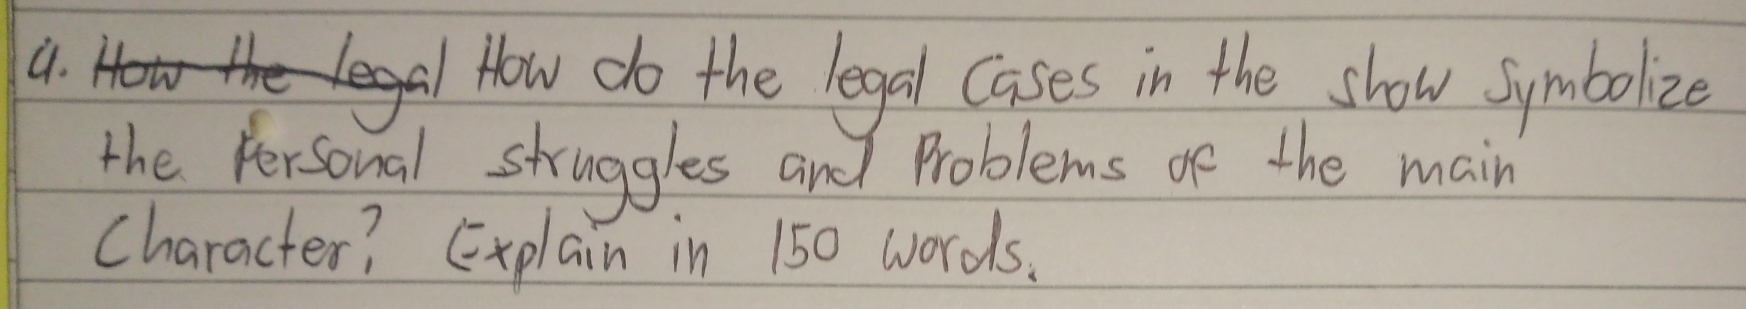 4. How the legal How do the legal Cases in the show Symbolize
the Personal struggles and Problems of the main
Character? Explain in 150 words.